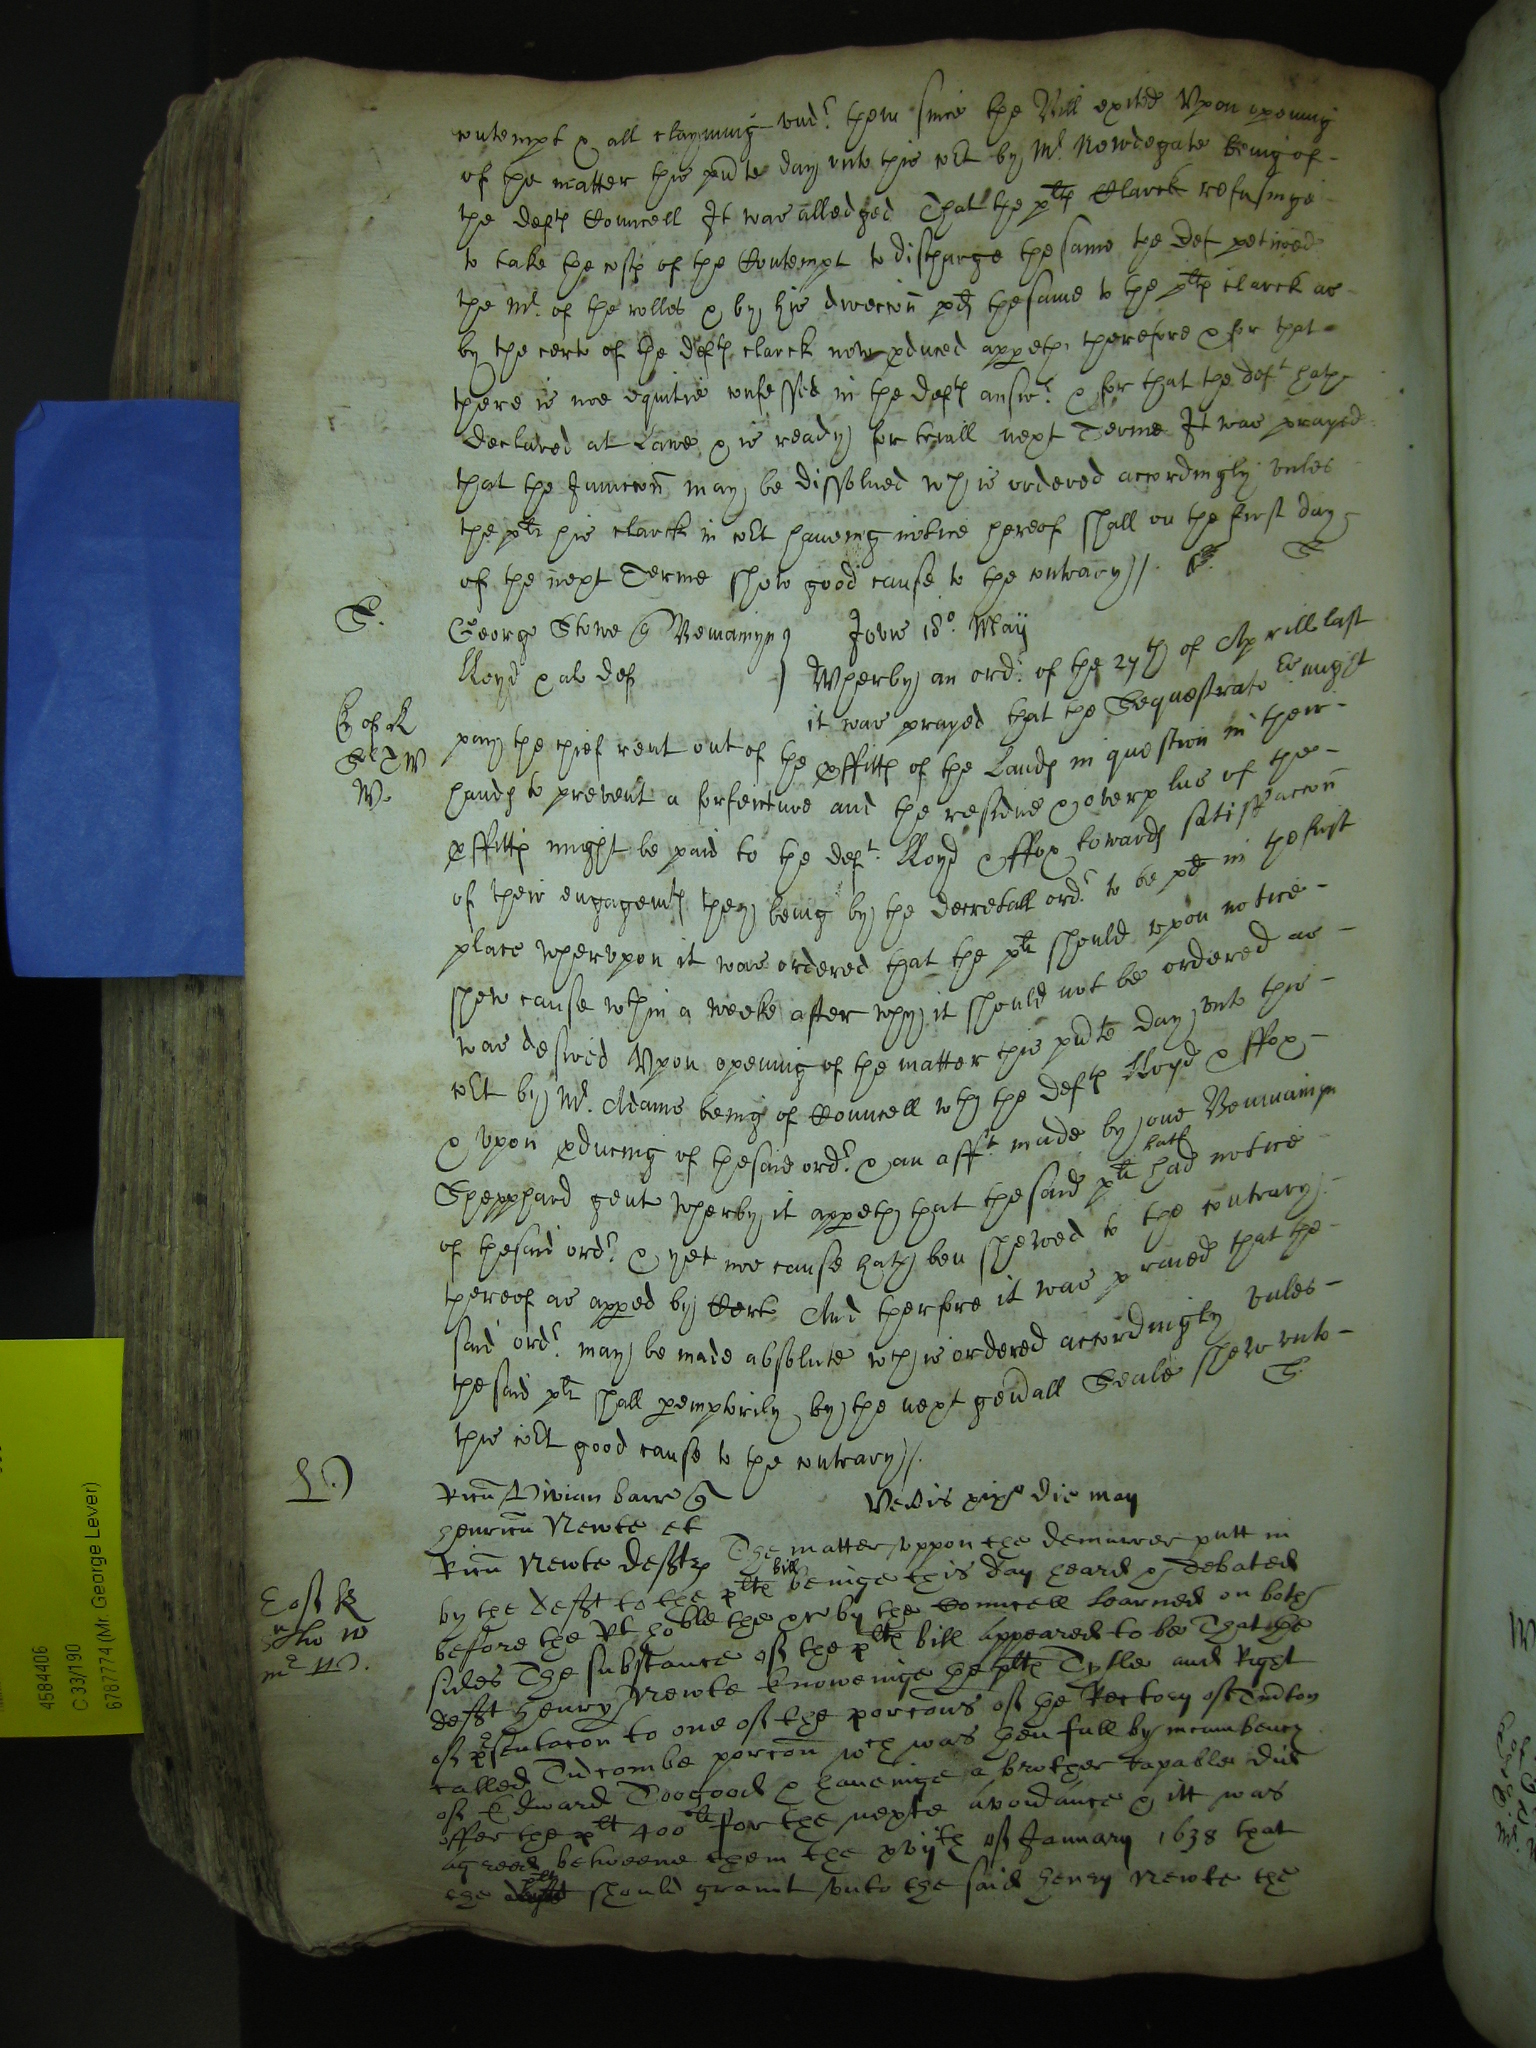 contempt & all clayming vnd.r them since the Bill exited Vpon opening
of the matter this pnte day vnto this cort by Mr. Newdegate being of
the defts Councell It was alledged That the plts Clarck refusinge
to take the costs of the Contempt to discharge the same the def peticoned
the Mr. of the rolles & by his direccon pd the same to the plts clarck as
by the certe of the defts clarck now pduced appeth therefore & for that
there is noe equitie confessed in the defts answ.r & for that the deft hath
declared at Lawe & is ready for triall next Terme It was prayed
that the Iniuccon may be dissolued wch is ordered accordingly vnles
the plt his clarck in cort haveing notice hereof shall on the first day
of the next Terme shew good cause to the contrary//.
S.
George Stowe q Benamyn
Lloyd & al def
Jovis 18o. Maij
Wherby an ord.r of the 27th of Aprill last
it was prayed that the Sequestrato.rs might
pay the chief rent out of the pffitts of the Lands in question in their
hands to prevent a forfeiture and the residue & overplus of the
pffitts might be paid to the deft. Lloyd & ffox towards satisfaccon
of their engagemts they being by the decretall ord.r to be pd in the first
place whervpon it was ordered that the plt should vpon notice
shew cause wthin a weeke after why it should not be ordered as
was desired Vpon opening of the matter this pnte day vnto this
cort by Mr. Adams being of Councell wth the defts Lloyd & ffox
& vpon pducing of the said ord.r & an afft. made by one Beniamin
Shepphard gent wherby it appeth that the said plt hath had notice
of the said ord.r & yet noe cause hath ben shewed to the contrary
thereof as apped by Certe And therfore it was praied that the
said ord.r may be made absolute wch is ordered accordingly vnles
the said plt shall pemptorily by the next genall Seale shew vnto
this cort good cause to the contrary//.
S
Ricu Vivian barr q
Henricu Newte et
Ricu Newte deffts
Veneris xix die may
The matter vppon the demurrer putt in
by the defft to the plts bill beinge this day heard & debated
before the Rt hoble the by the Councell Learned on both
sides The substance of the plts bill appeared to be That the
defft Henry Newte knoweinge the plts Tytle and Right
of psentacon to one of the porcons of the Rectory of
called Tidcombe porcon wch was then full by incumbency
of Edward Toogood & haveinge a brother capable did
offer the plt 400li for the nexte avoidance & itt was
agreed betweene them the xvijth of January 1638 that
the plt should graunt vnto the said Henry Newte the
4584406
C 33/190
6787774 (Mr. George Lever)